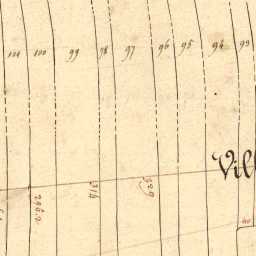 101 100 99 98 97 96 95 94 93
Vill
314
329